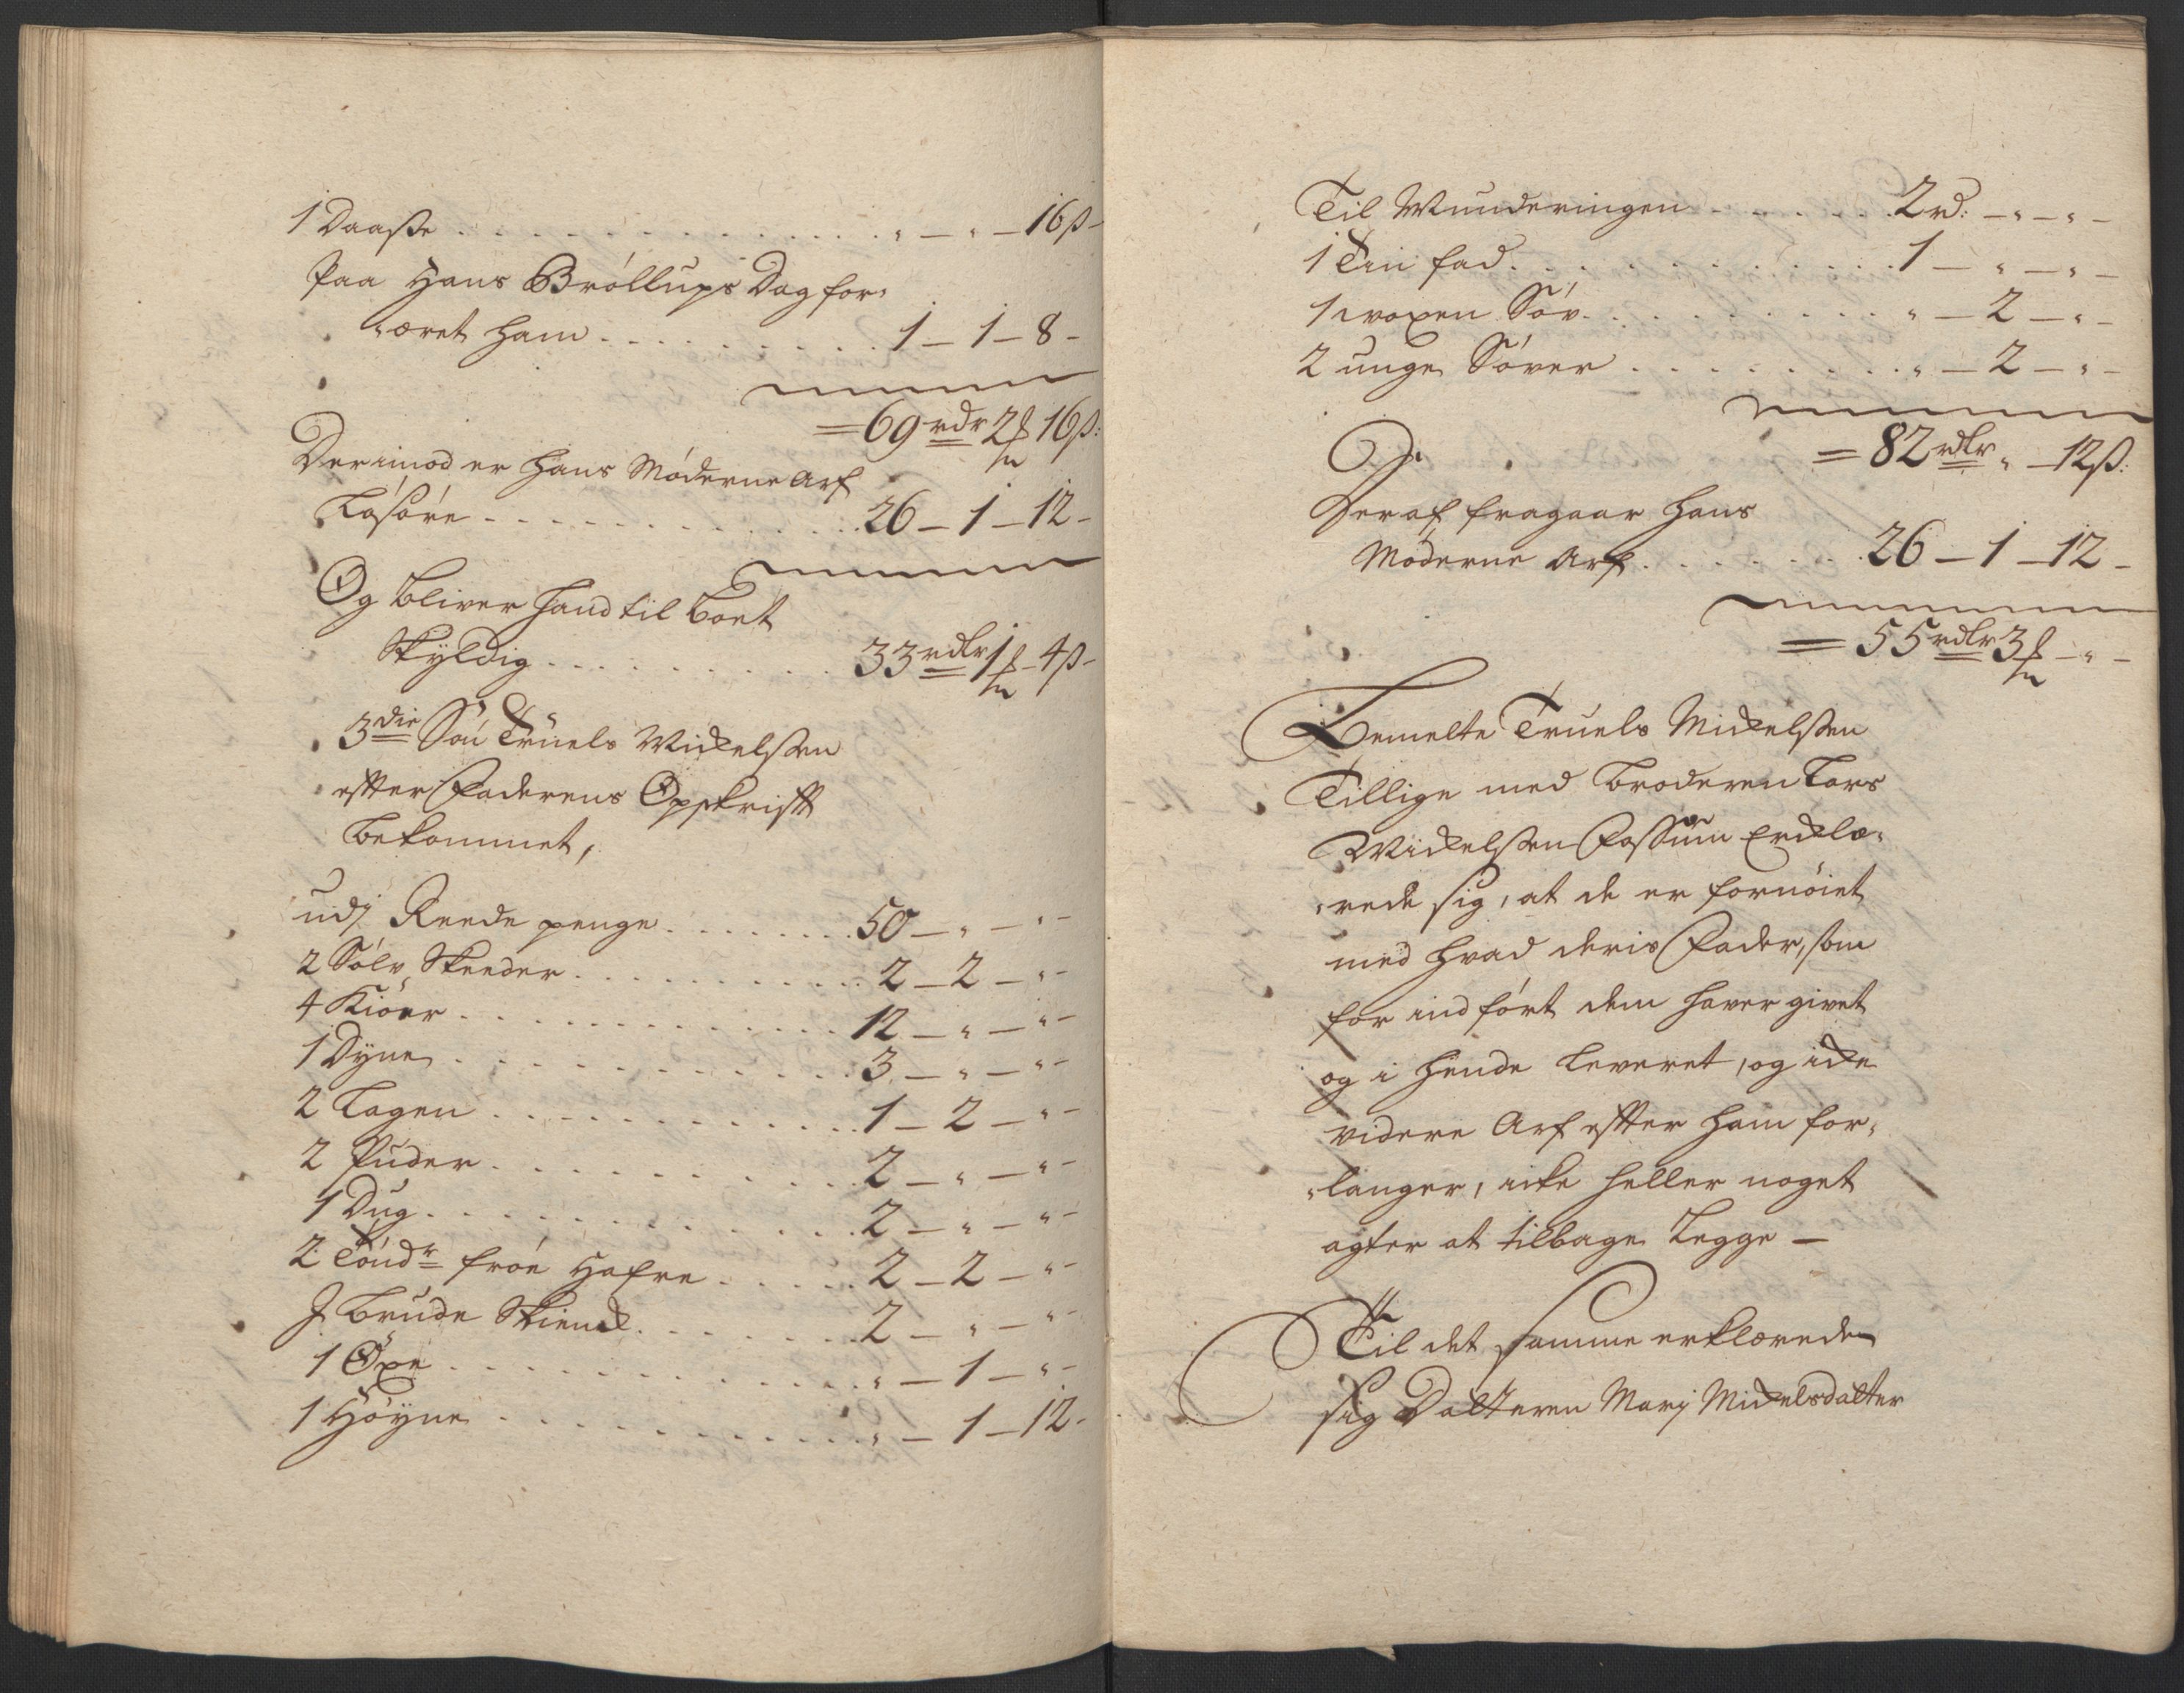 1 Daasße . . . . . . . „ – „ – 16 ß –
Paa Hans Bröllups Dag for„
„æret ham . . . . . . . 1 – 1 – 8 –
= 69 rdr 2 ₰ 16 ß:
Derimod er hans Möderne Arf
Lösöre . . . . . . . 26 – 1 – 12 –
Og bliver hand til boet
Skyldig . . . . . . . 33 rdlr 1 ₰ – 4 ß –
3die Sön Truels Mickelsßen
efter Faderens Opskrift
bekommet,
udj Reede penge . . . . . . . 50 – „ – „ –
2 Sölv Skeeder . . . . . . . 2 – 2 – „ –
4 Kiöer . . . . . . . 12 – „ – „ –
1 Dÿne . . . . . . . 3 – „ – „ –
2 Lagen . . . . . . . 1 – 2 – „ –
2 Puder . . . . . . . 2 – „ – „ –
1 Dug . . . . . . . 2 – „ – „ –
2 Töndr fröe Hafre . . . . . 2 – 2 – „ –
J Brude Skienck . . . . . . . 2 – „ – „ –
1 Öxe . . . . . . . „ – 1 – „ –
1 Höÿne . . . . . . . „ – 1 – 12 –
Til Munderingen . . . . . . . 2 rd: – „ – „ –
1 Tin fad . . . . . . . 1 – „ – „ –
1 voxen Söv . . . . . . . „ – 2 – „ –
2 unge Söver . . . . . . . „ – 2 – „ –
= 82 rdlr „ – 12 ß:
Deraf fragaar hans
Möderne Arf . . . . . . . 26 – 1 – 12 –
= 55 rdlr 3 ₰ – „ –
Bemelte Truels Mickelsßen
Tillige med broderen Lars
Mickelsßen Fossum Erklæ„
„rede sig, at de er fornöiet
med hvad deris Fader, som
for indfört dem haver givet
og i hende leveret, og icke
videre Arf efter ham for„
„langer, icke heller noget
agter at tilbage Legge –
Til det samme erklærede
sig Datteren Marj Mickelsdatter